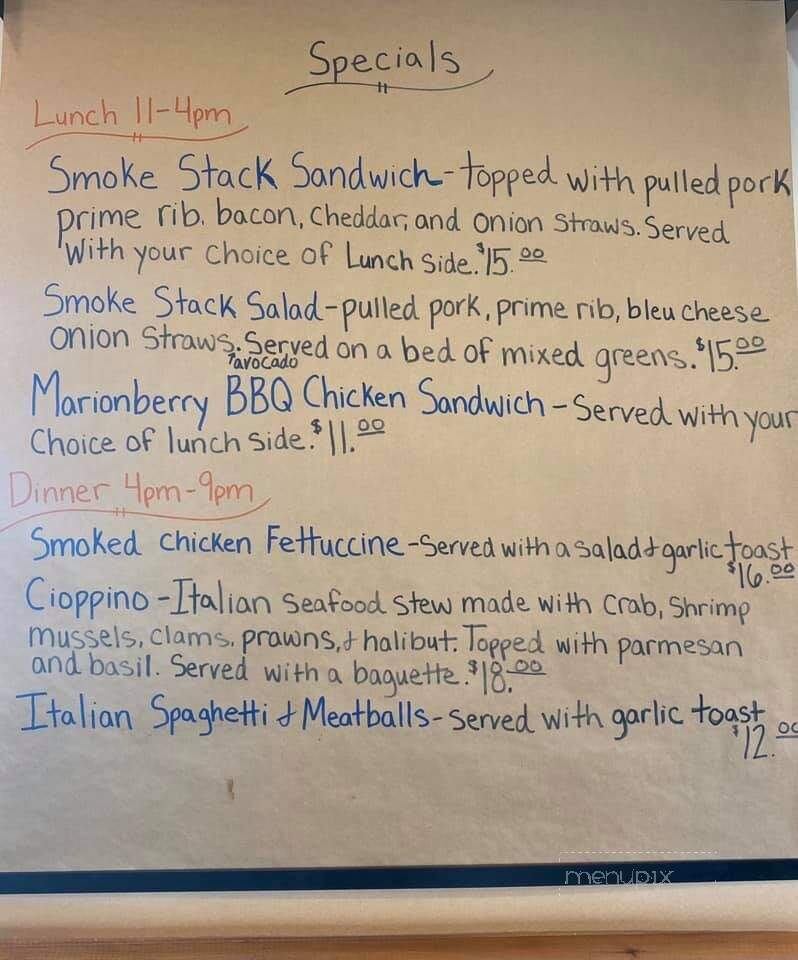 Specials
Lunch 11-4pm
Smoke Stack Sandwich-topped with pulled pork
prime rib. bacon, cheddar, and onion straws. Served
with your choice of Lunch side. $15.00
Smoke Stack Salad-pulled pork, prime rib, bleu cheese
onion straws. Served on a bed of mixed greens. $15.00
↑avocado
Marionberry BBQ Chicken Sandwich-Served with your
Choice of lunch side. $11.00
Dinner 4pm-9pm
Smoked Chicken Fettuccine-Served with a salad & garlic toast
$16.00
Cioppino-Italian seafood stew made with crab, shrimp
mussels, clams. prawns, & halibut. Topped with parmesan
and basil. Served with a baguette. $18.00
Italian Spaghetti & Meatballs-served with garlic toast
$12.00
menupix